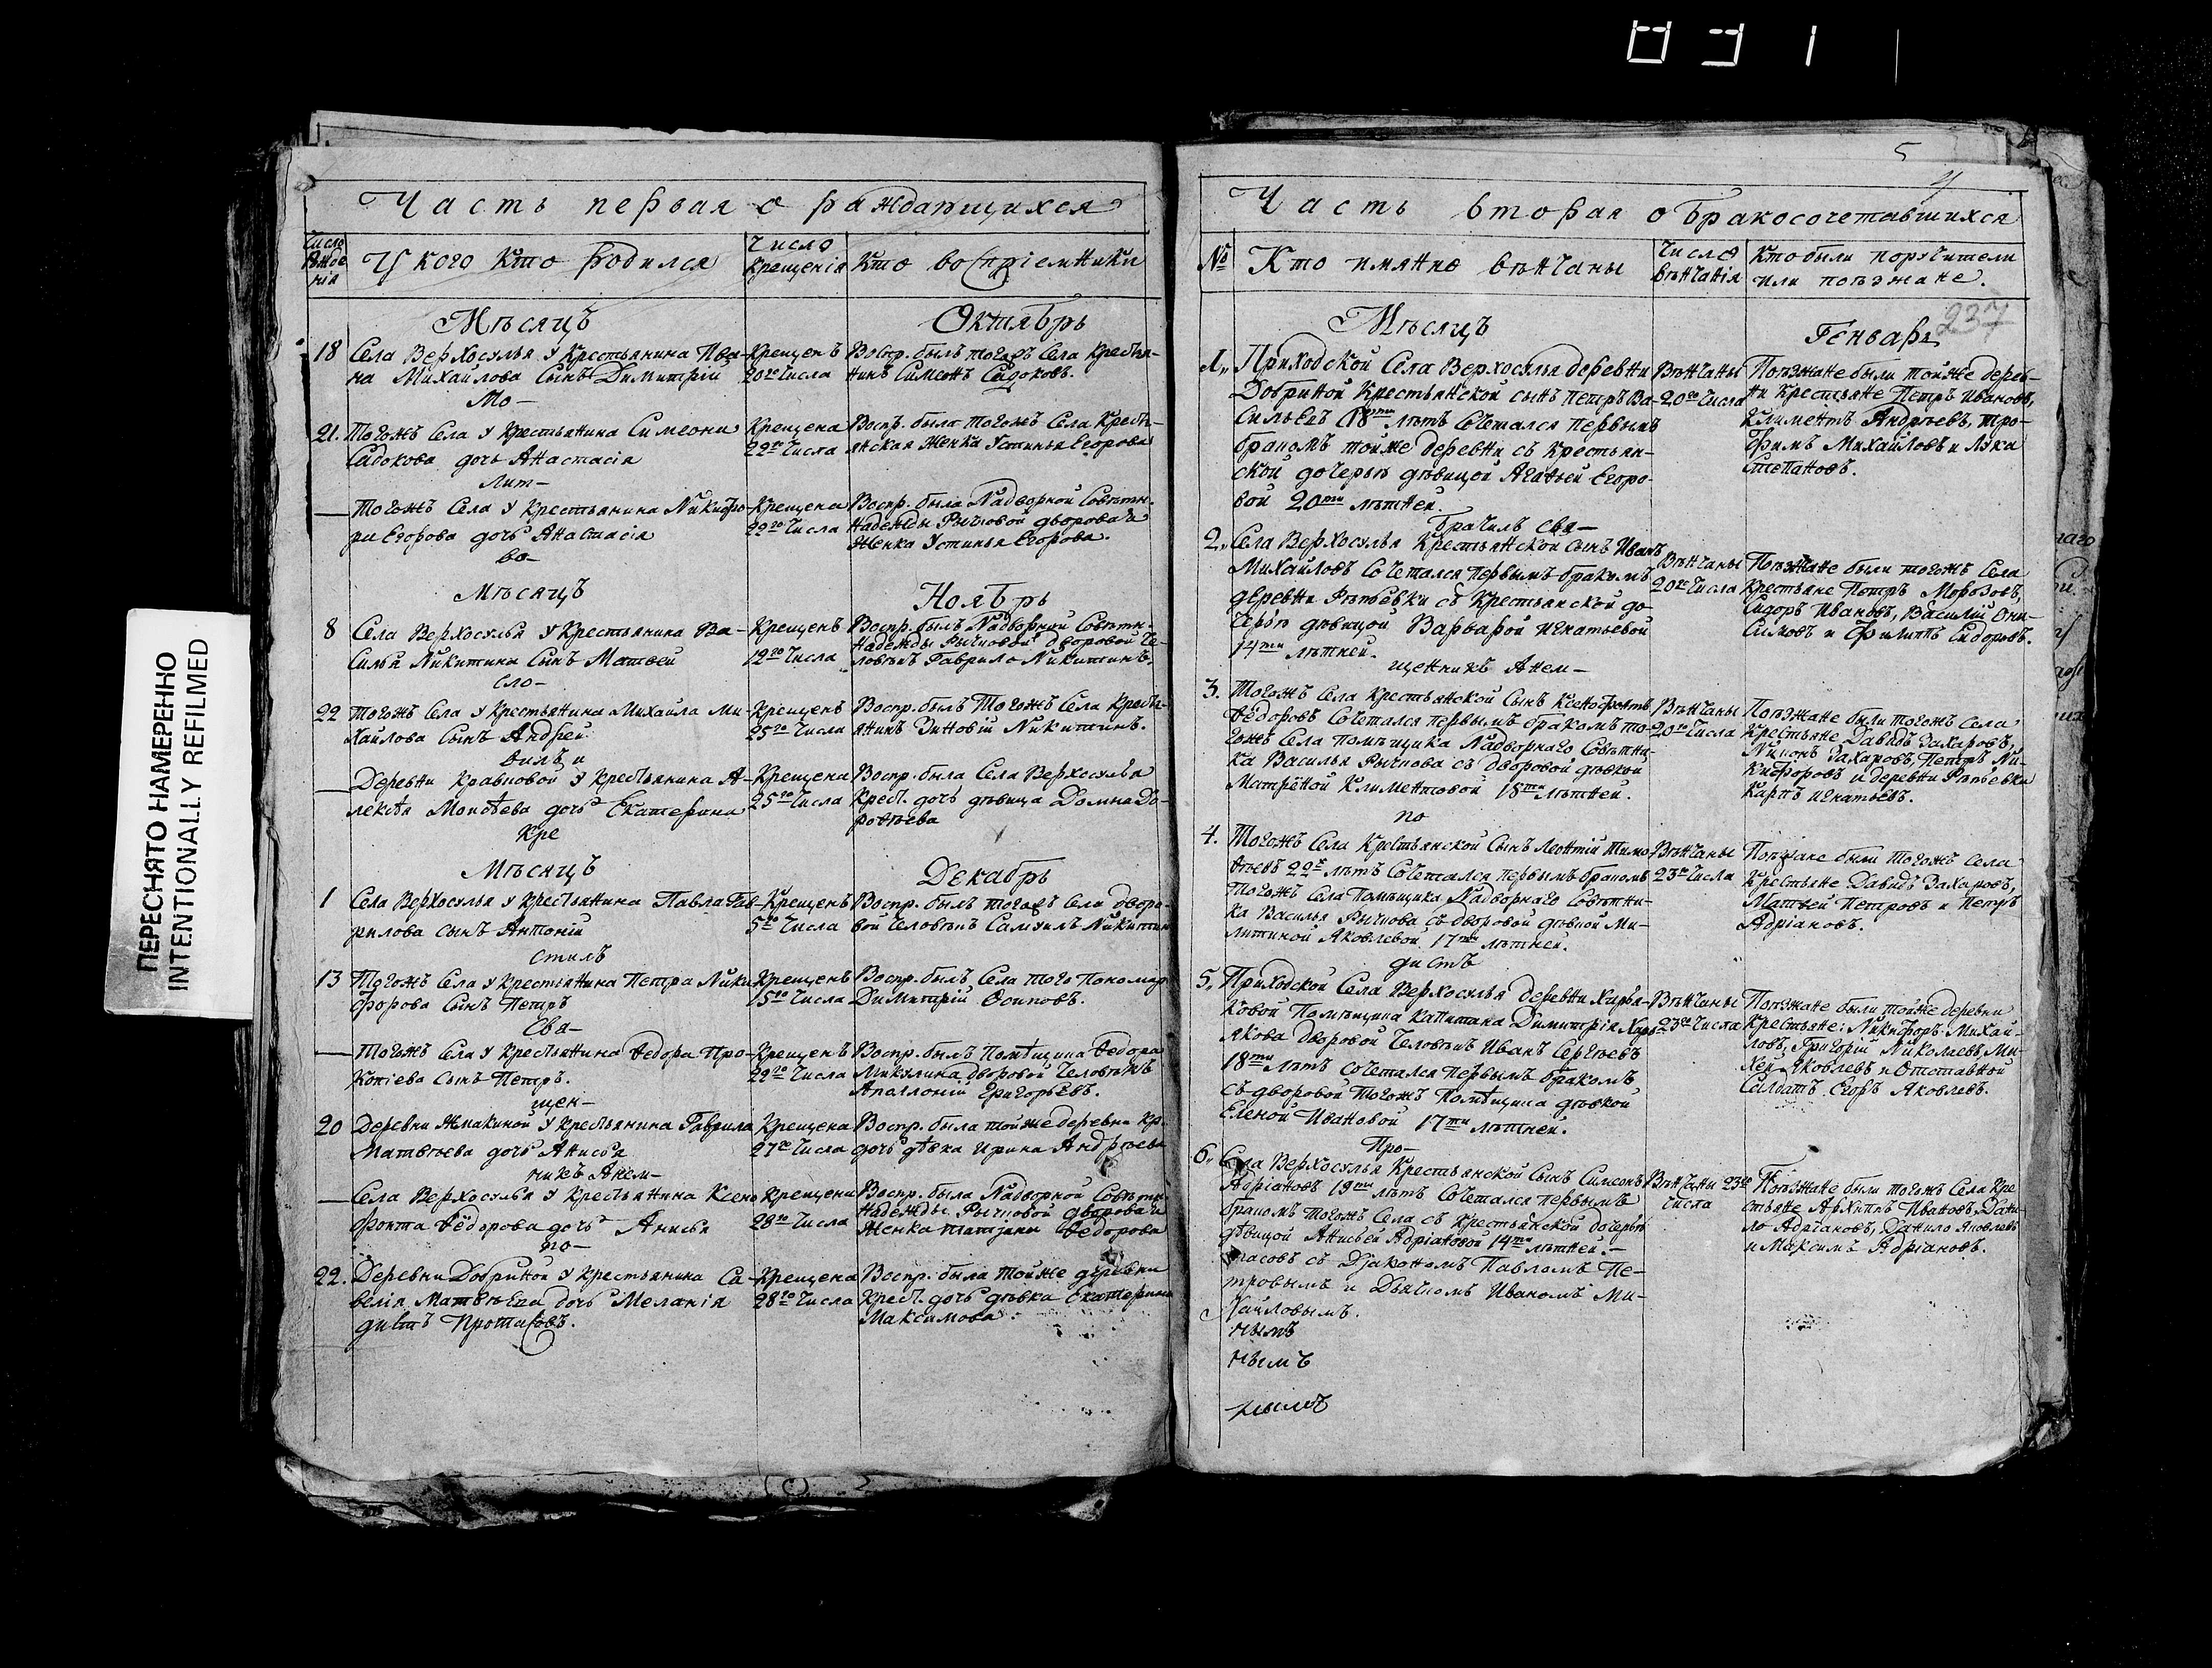 ПЕРЕСНЯТО НАМЕРЕННО
INTENTIONALLY REFILMED
Часть первая о раждающихся
Число Рождения
У кого кто родился
Число Крещенія
Кто воспріемники
Мѣсяцъ Октябрь
18 Села Верхосулья у Крестьянина Ива-
на Михайлова Сынъ Димитрій
Крещенъ
20го Числа
Воспр. былъ тогожъ Села Крестья-
нинъ Симеонъ Садоковъ.
Мо-
21. Тогожъ Села у Крестьянина Симеона
Садокова дочь Анастасія
Крещена
22го Числа
Воспр. была тогожъ Села Кресть-
янская Женка Устинья Егорова
лит-
Тогожъ Села у Крестьянина Никифо-
ра Егорова дочь Анастасія
Крещена
22го Числа
Воспр. была Надворной Совѣтн.
Надежды Рычковой дворовая
Женка Устинья Егорова.
во-
Мѣсяцъ Ноябрь
8 Села Верхосулья у Крестьянина Ва-
силья Никитина Сынъ Матвей
Крещенъ
12го Числа
Воспр. былъ Надворной Совѣтн.
Надежды Рычковой дворовой Че-
ловѣкъ Гаврило Никитинъ.
сло-
22 Тогожъ Села у Крестьянина Михайла Ми-
хайлова Сынъ Андрей
Крещенъ
25го Числа
Воспр. былъ Тогожъ Села Кресть-
янинъ Зиновій Никитинъ.
вилъ и
Деревни Кравцовой у Крестьянина А-
лексѣя дочь Екатерина
Крещена
25го Числа
Воспр. была Села Верхосулья
Крест. дочь дѣвица Домна До-
рофѣева
Кре
Мѣсяцъ Декабрь
1 Села Верхосулья у Крестьянина Павла Гав-
рилова сынъ Антоній
Крещенъ
5го Числа
Воспр. былъ тогожъ Села дворо-
вой Человѣкъ Самуилъ Никитин
стилъ
13 Тогожъ Села у Крестьянина Петра Ники-
форова Сынъ Петръ
Крещенъ
15го Числа
Воспр. былъ Села того Пономарь
Димитрій Осиповъ.
Свя-
Тогожъ Села у Крестьянина Ѳедора Про-
копіева Сынъ Петръ.
Крещенъ
22го Числа
Воспр. былъ Помѣщика Ѳедора
Микулина дворовой Человѣкъ
Аполлоній Григорьевъ.
щен-
20 Деревни Жмакиной у Крестьянина Гаврила
Матвѣева дочь Анисья
Крещена
27го Числа
Воспр. была тойже деревни Кр.
дочь дѣвка Ирина Андрѣева
никъ Анем-
Села Верхосулья у Крестьянина Ксено
фонта Ѳёдорова дочь Анисья
Крещена
28го Числа
Воспр. была Надворной Совѣтн.
Надежды Рычковой дворовая
Женка Татіяна Ѳедорова
по-
22. Деревни Добриной у Крестьянина Са-
велія Матвѣева дочь Меланія
Крещена
28го Числа
Воспр. была Тойже деревни
Крест. дочь дѣвка Екатерина
Максимова.
дистъ Протасовъ.
5
4
Часть вторая о бракосочетавшихся
№
Кто имянно вѣнчаны
Число вѣнчанія
Кто были поручители
или поѣзжане.
237
Мѣсяцъ Генварь
1. Приходской Села Верхосулья деревни
Добриной Крестьянской сынъ Петръ Ва-
сильевъ 18ти лѣтъ Сочетался первымъ
бракомъ тойже деревни съ Крестьян-
ской дочерью дѣвицой Агафьей Егоро-
вой 20ти лѣтней.
Вѣнчаны
20го Числа
Поѣзжане были тойже дерев-
ни Крестьяне Петръ Ивановъ,
Климентъ Андрѣевъ, Тро-
фимъ Михайловъ и Лука
Степановъ.
брачилъ свя-
2. Села Верхосулья Крестьянской сынъ Иванъ
Михайловъ Сочетался первымъ бракомъ
деревни Рѣпьевки съ Крестьянской до-
черью дѣвицой Варварой Игнатьевой
14ти лѣтней.
Вѣнчаны
20го Числа
Поѣзжане были тогожъ Села
Крестьяне Петръ Морозовъ,
Сидоръ Ивановъ, Василій Они-
симовъ и Филиппъ Сидоровъ.
щенникъ Анем-
3. Тогожъ Села Крестьянской Сынъ Ксенофонтъ
Ѳёдоровъ Сочетался первымъ бракомъ то-
гожъ Села помѣщика Надворнаго Совѣтни-
ка Василья Рычкова съ дворовой дѣвкой
Матрёной Климентовой 18ти лѣтней.
Вѣнчаны
20го Числа
Поѣзжане были тогожъ Села
Крестьяне Давидъ Захаровъ,
Никонъ Захаровъ, Петръ Ни-
кифоровъ и деревни Рѣпьевки
Карпъ Игнатьевъ.
по
4. Тогожъ Села Крестьянской Сынъ Леонтій Тимо
ѳѣевъ 22хъ лѣтъ Сочетался первымъ бракомъ
Тогожъ Села Помѣщика Надворнаго Совѣтни-
ка Василья Рычкова съ дворовой дѣвкой Ми-
литиной Яковлевой 17ти лѣтней.
Вѣнчаны
23го Числа
Поѣзжане были тогожъ Села
Крестьяне Давидъ Захаровъ,
Матвей Петровъ и Петръ
Адріановъ.
дистъ
5. Приходской Села Верхосулья деревни Хирья-
ковой Помѣщика Капитана Димитрія Хирь-
якова дворовой Человѣкъ Иванъ Сергѣевъ
18ти лѣтъ сочетался первымъ бракомъ
съ дворовой тогожъ Помѣщика дѣвкой
Еленой Ивановой 17ти лѣтней.
Вѣнчаны
23го Числа
Поѣзжане были тойже деревни
Крестьяне: Никифоръ Михай-
ловъ, Григорій Николаевъ, Ми-
хей Яковлевъ и Отставной
Салдатъ Егоръ Яковлевъ.
Про-
6. Села Верхосулья Крестьянской Сынъ Симеонъ
Адріановъ 19ти лѣтъ Сочетался первымъ
бракомъ тогожъ Села съ Крестьянской дочерью
дѣвицой Анисьей Адріановой 14ти лѣтней.-
Вѣнчаны 23го
числа
Поѣзжане были тогожъ Села Кре
стьяне Архипъ Ивановъ, Дани-
ло Адріановъ, Данило Яковлевъ
и Максимъ Адріановъ.
тасовъ съ Діакономъ Павломъ Пе-
тровымъ и Дьячкомъ Иваномъ Ми-
хайловымъ.